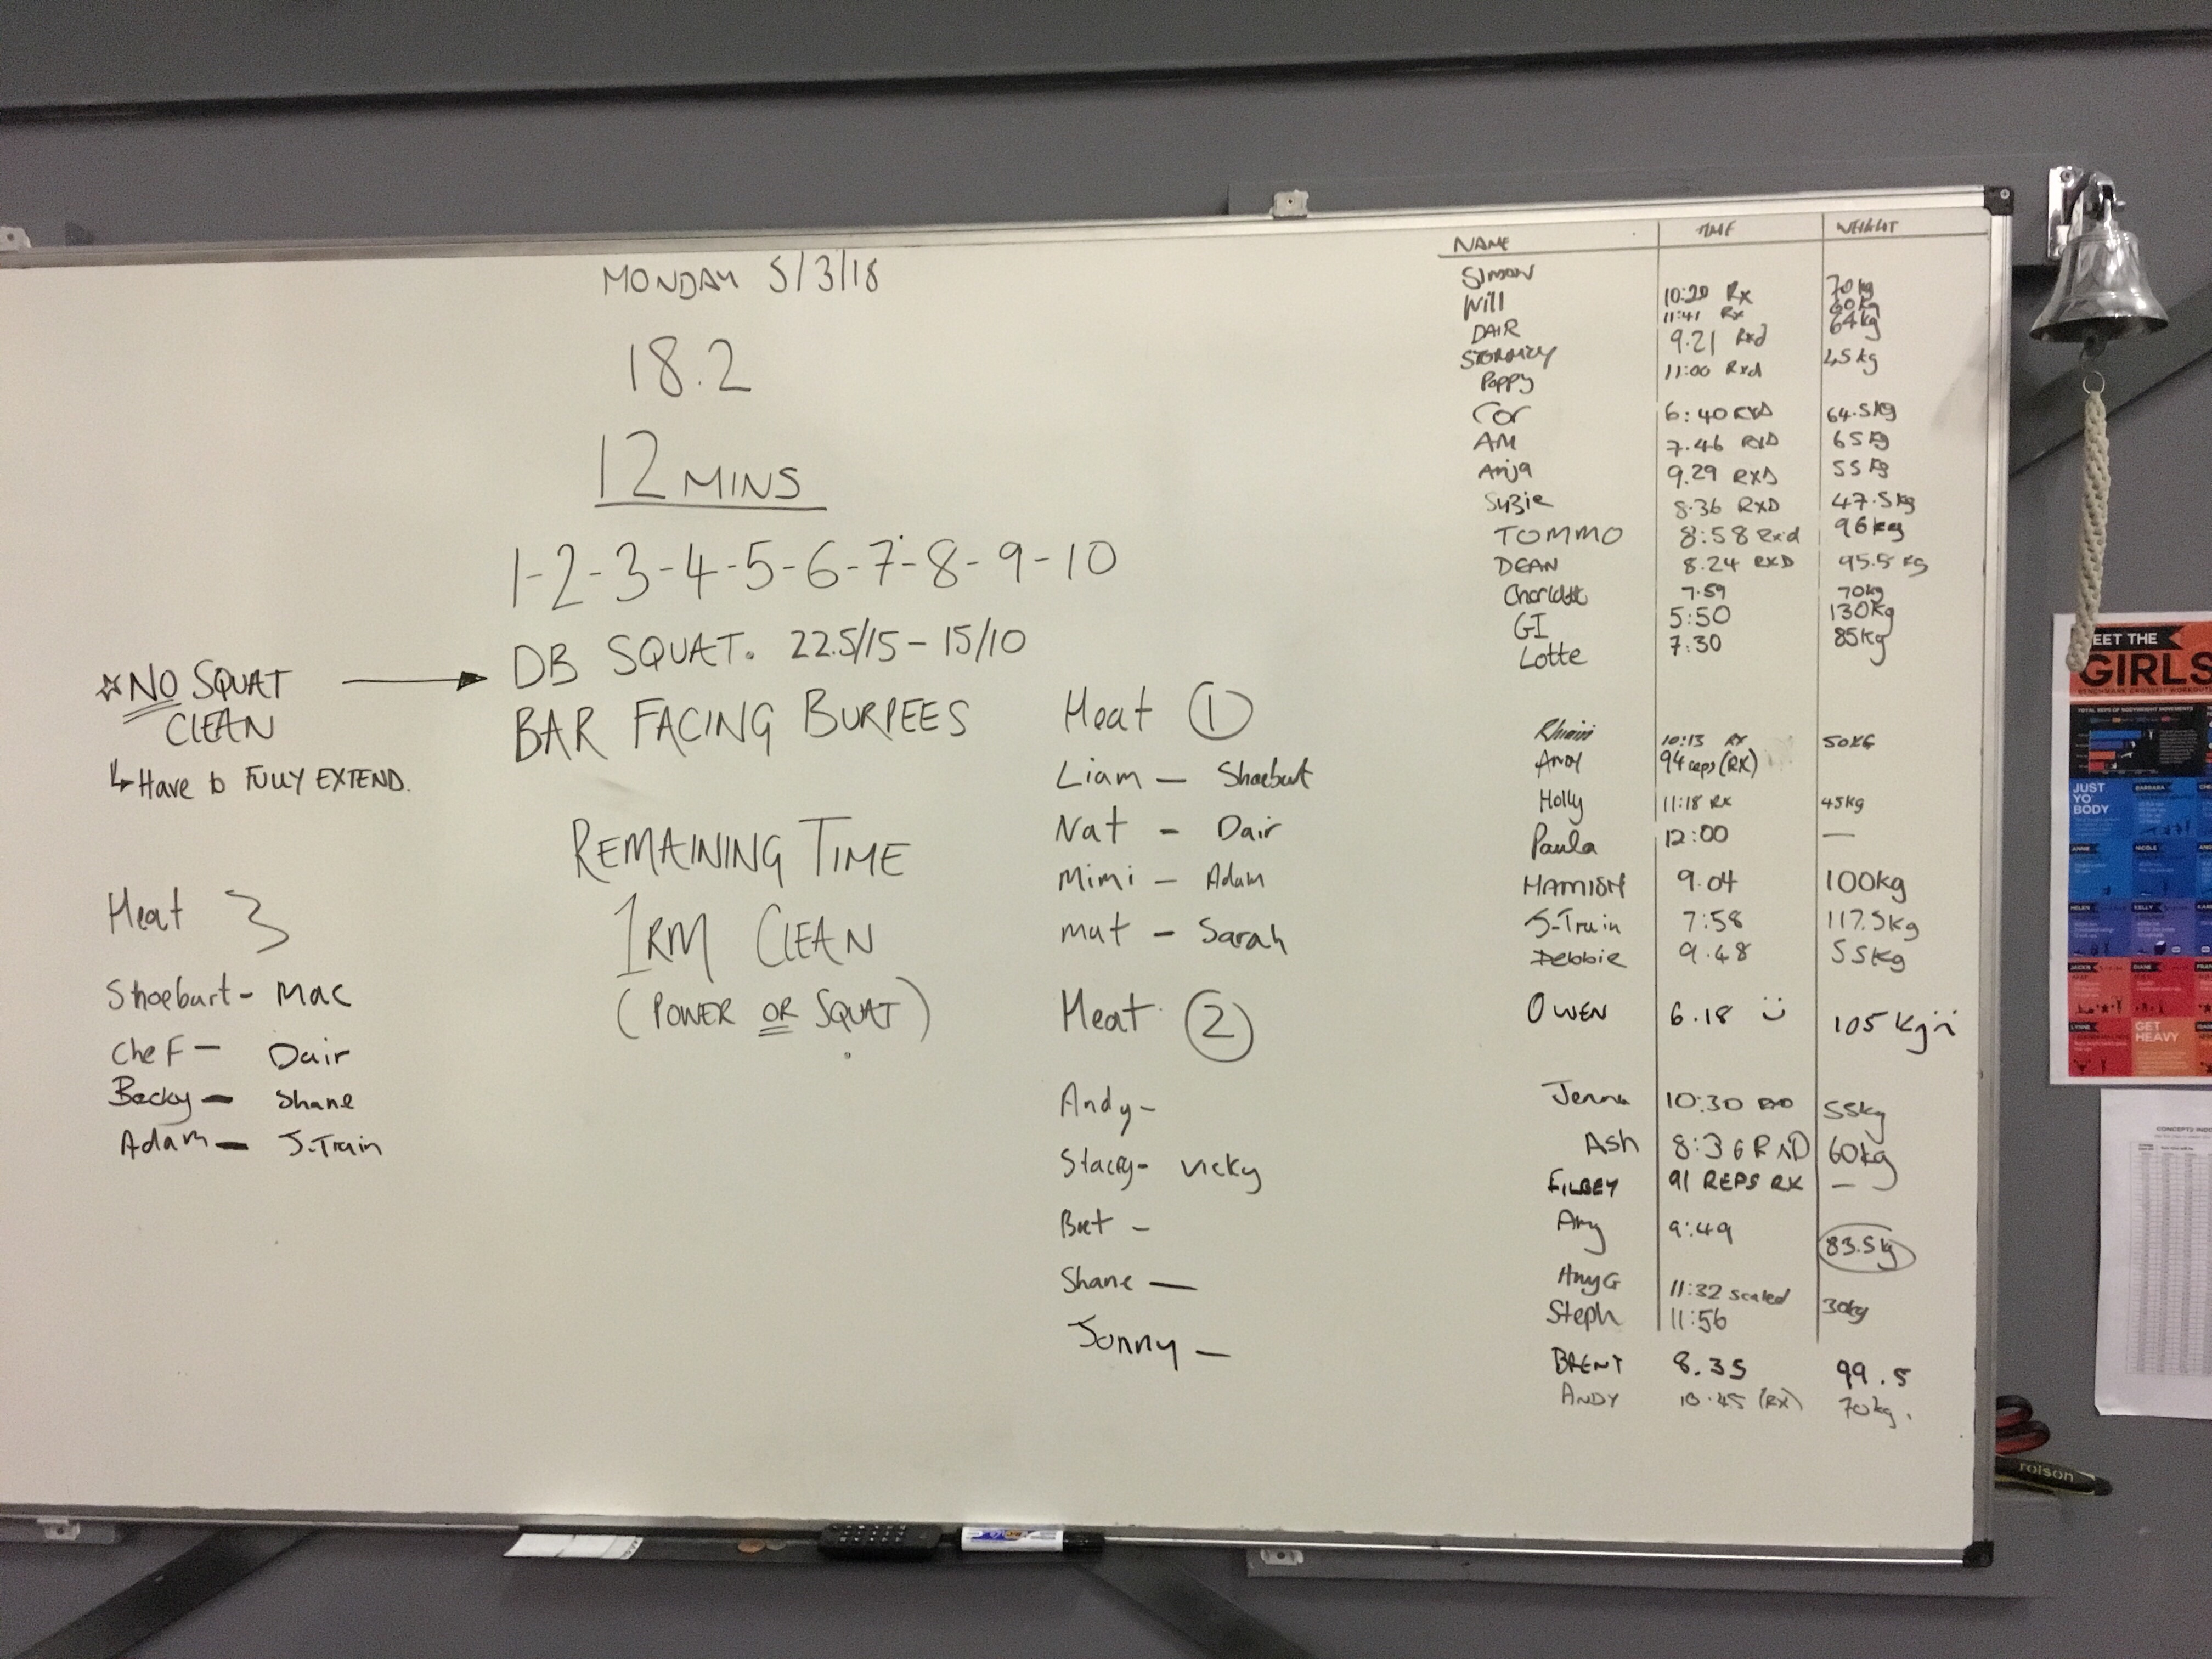 MONDAY 5/3/18
18.2
12 MINS
1-2-3-4-5-6-7-8-9-10
DB SQUAT. 22.5/15 - 15/10
BAR FACING BURPEES
REMAINING TIME
1RM CLEAN
(POWER OR SQUAT)
NO SQUAT
CLEAN
Have to FULLY EXTEND.
Heat 3
Shoebart - Mac
Chef - Dair
Becky - Shane
Adam - J-Train
Heat 1
Liam - Shoebart
Nat - Dair
Mimi - Adam
Mat - Sarah
Heat 2
Andy -
Stacey - Vicky
Bret -
Shane -
Jonny -
NAME TIME WEIGHT
SIMON
Will 10:20 Rx 70kg
11:41 Rx 60kg
DAIR 9.21 Rxd 64kg
11:00 Rxd 45kg
Poppy
Cor 6:40 RXD 64.5kg
AM 7.46 RXD 65kg
Anja 9.29 RXD 55kg
Suzie 8.36 RXD 47.5kg
TOMMO 8:58 Rxd 96kg
DEAN 8.24 RXD 95.5kg
Charlotte 7.59 70kg
GI 5:50 130kg
Lotte 7:30 85kg
10:13 RX 50KG
Andy 94 reps (RX)
Holly 11:18 RX 45kg
Paula 12:00 —
HAMISH 9.04 100kg
J-Train 7:58 117.5kg
Debbie 9.48 55kg
OWEN 6.18 105kg
Jenna 10:30 55kg
Ash 8:36 RXD 60kg
FILBEY 91 REPS RX —
Amy 9:49 83.5kg
11:32 scaled 30kg
Steph 11:56
BRENT 8.35 99.5
ANDY (RX) 70kg.
MEET THE
GIRLS
JUST
YO'
BODY
BARBARA
ANNIE
NICOLE
HELEN
KELLY
JACKIE
DIANE
LYNNE
GET
HEAVY
rolson